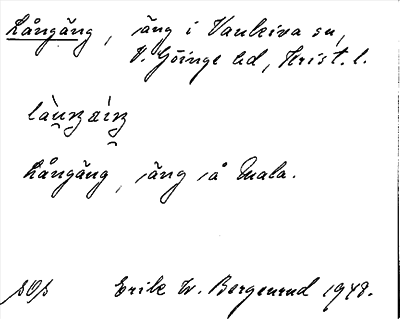 Långäng, äng i Vankiva sn,
V. Göinge hd, Krist. l.
Långäng, äng å Mala.
sOs Erik W. Bergenrud 1948.